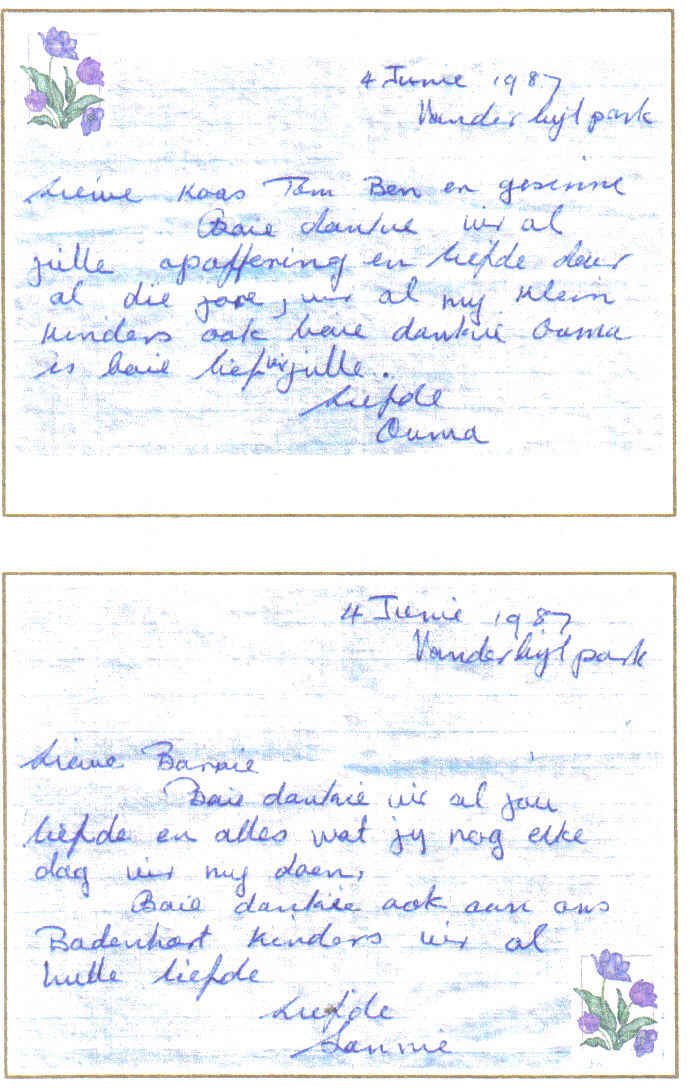 4 Junie 1987
Vanderbijl park
Liewe Koos Tom Ben en gesinne
Baie dankie vir al
julle opoffering en liefde deur
al die jare, vir al my klein
kinders ook baie dankie Ouma
is baie lief vir julle.
Liefde
Ouma
4 Junie 1987
Vanderbijl park
Liewe Barnie
Baie dankie vir al jou
liefde en alles wat jy nog elke
dag vir my doen,
Baie dankie ook aan ons
Badenhorst kinders vir al
hulle liefde
Liefde
Sannie